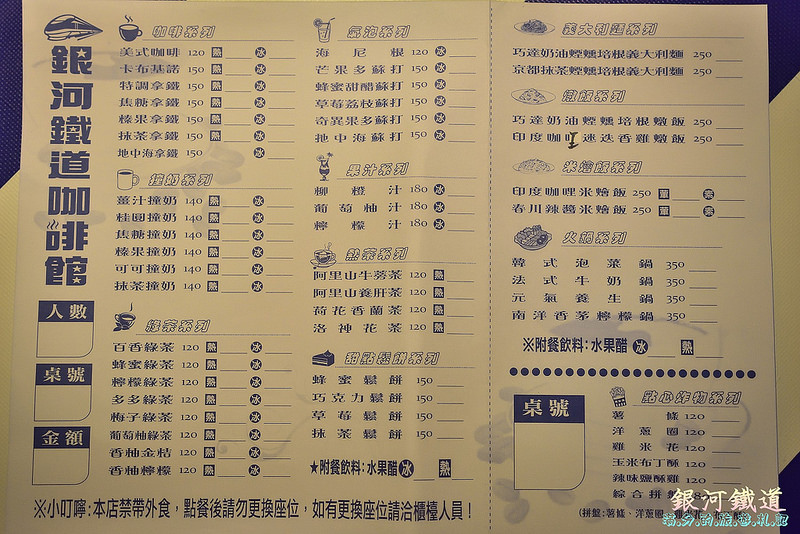 銀河鐵道咖啡館
人數
桌號
金額
咖啡系列
美式咖啡 120 熱 冰
卡布基諾 150 熱 冰
特調拿鐵 150 熱 冰
焦糖拿鐵 150 熱 冰
榛果拿鐵 150 熱 冰
抹茶拿鐵 150 熱 冰
地中海拿鐵 150 冰
撞奶系列
薑汁撞奶 140 熱 冰
桂圓撞奶 140 熱 冰
焦糖撞奶 140 熱 冰
榛果撞奶 140 熱 冰
可可撞奶 140 熱 冰
抹茶撞奶 140 熱 冰
綠茶系列
百香綠茶 120 熱 冰
蜂蜜綠茶 120 熱 冰
檸檬綠茶 120 熱 冰
多多綠茶 120 熱 冰
梅子綠茶 120 熱 冰
葡萄柚綠茶 120 熱 冰
香柚金桔 120 熱 冰
香柚檸檬 120 熱 冰
氣泡系列
海尼根 120 冰
芒果多蘇打 150 冰
蜂蜜甜醋蘇打 150 冰
草莓荔枝蘇打 150 冰
奇異果多蘇打 150 冰
地中海蘇打 150 冰
果汁系列
柳橙汁 180 冰
葡萄柚汁 180 冰
檸檬汁 180 冰
熱茶系列
阿里山牛蒡茶 120 熱
阿里山養肝茶 120 熱
荷花香蘭茶 120 熱
洛神花茶 120 熱
甜點鬆餅系列
蜂蜜鬆餅 150
巧克力鬆餅 150
草莓鬆餅 150
抹茶鬆餅 150
★附餐飲料:水果醋 冰 熱
義大利麵系列
巧達奶油煙燻培根義大利麵 250
京都抹茶煙燻培根義大利麵 250
燉飯系列
巧達奶油煙燻培根燉飯 250
印度咖哩迷迭香雞燉飯 250
米燴飯系列
印度咖哩米燴飯 250 葷 素
春川辣醬米燴飯 250 葷 素
火鍋系列
韓式泡菜鍋 350
法式牛奶鍋 350
元氣養生鍋 350
南洋香茅檸檬鍋 350
※附餐飲料:水果醋 冰 熱
桌號
點心炸物系列
薯條 120
洋蔥圈 120
雞米花 120
玉米布丁酥 120
辣味鹽酥雞 120
綜合拼盤
(拼盤:薯條、洋蔥圈
※小叮嚀:本店禁帶外食，點餐後請勿更換座位，如有更換座位請洽櫃檯人員!
銀河鐵道